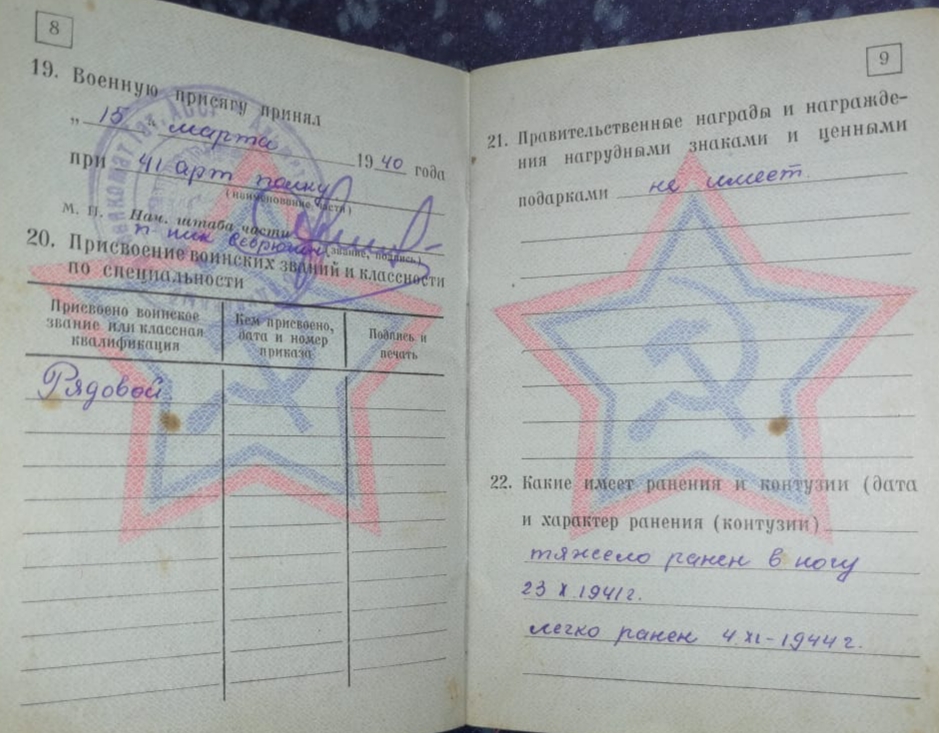 8
19. Военную присягу принял
„ 15 " марта 1940 года
при 41 арт полку
(наименование части)
М. П. Нач. штаба части
(звание, подпись)
20. Присвоение воинских званий и классности
по специальности
Присвоено воинское
звание или классная
квалификация
Кем присвоено,
дата и номер
приказа
Подпись и
печать
Рядовой
9
21. Правительственные награды и награжде-
ния нагрудными знаками и ценными
подарками не имеет
22. Какие имеет ранения и контузии (дата
и характер ранения (контузии)
тяжело ранен в ногу
23 X 1941г.
легко ранен 4.XI-1944г.